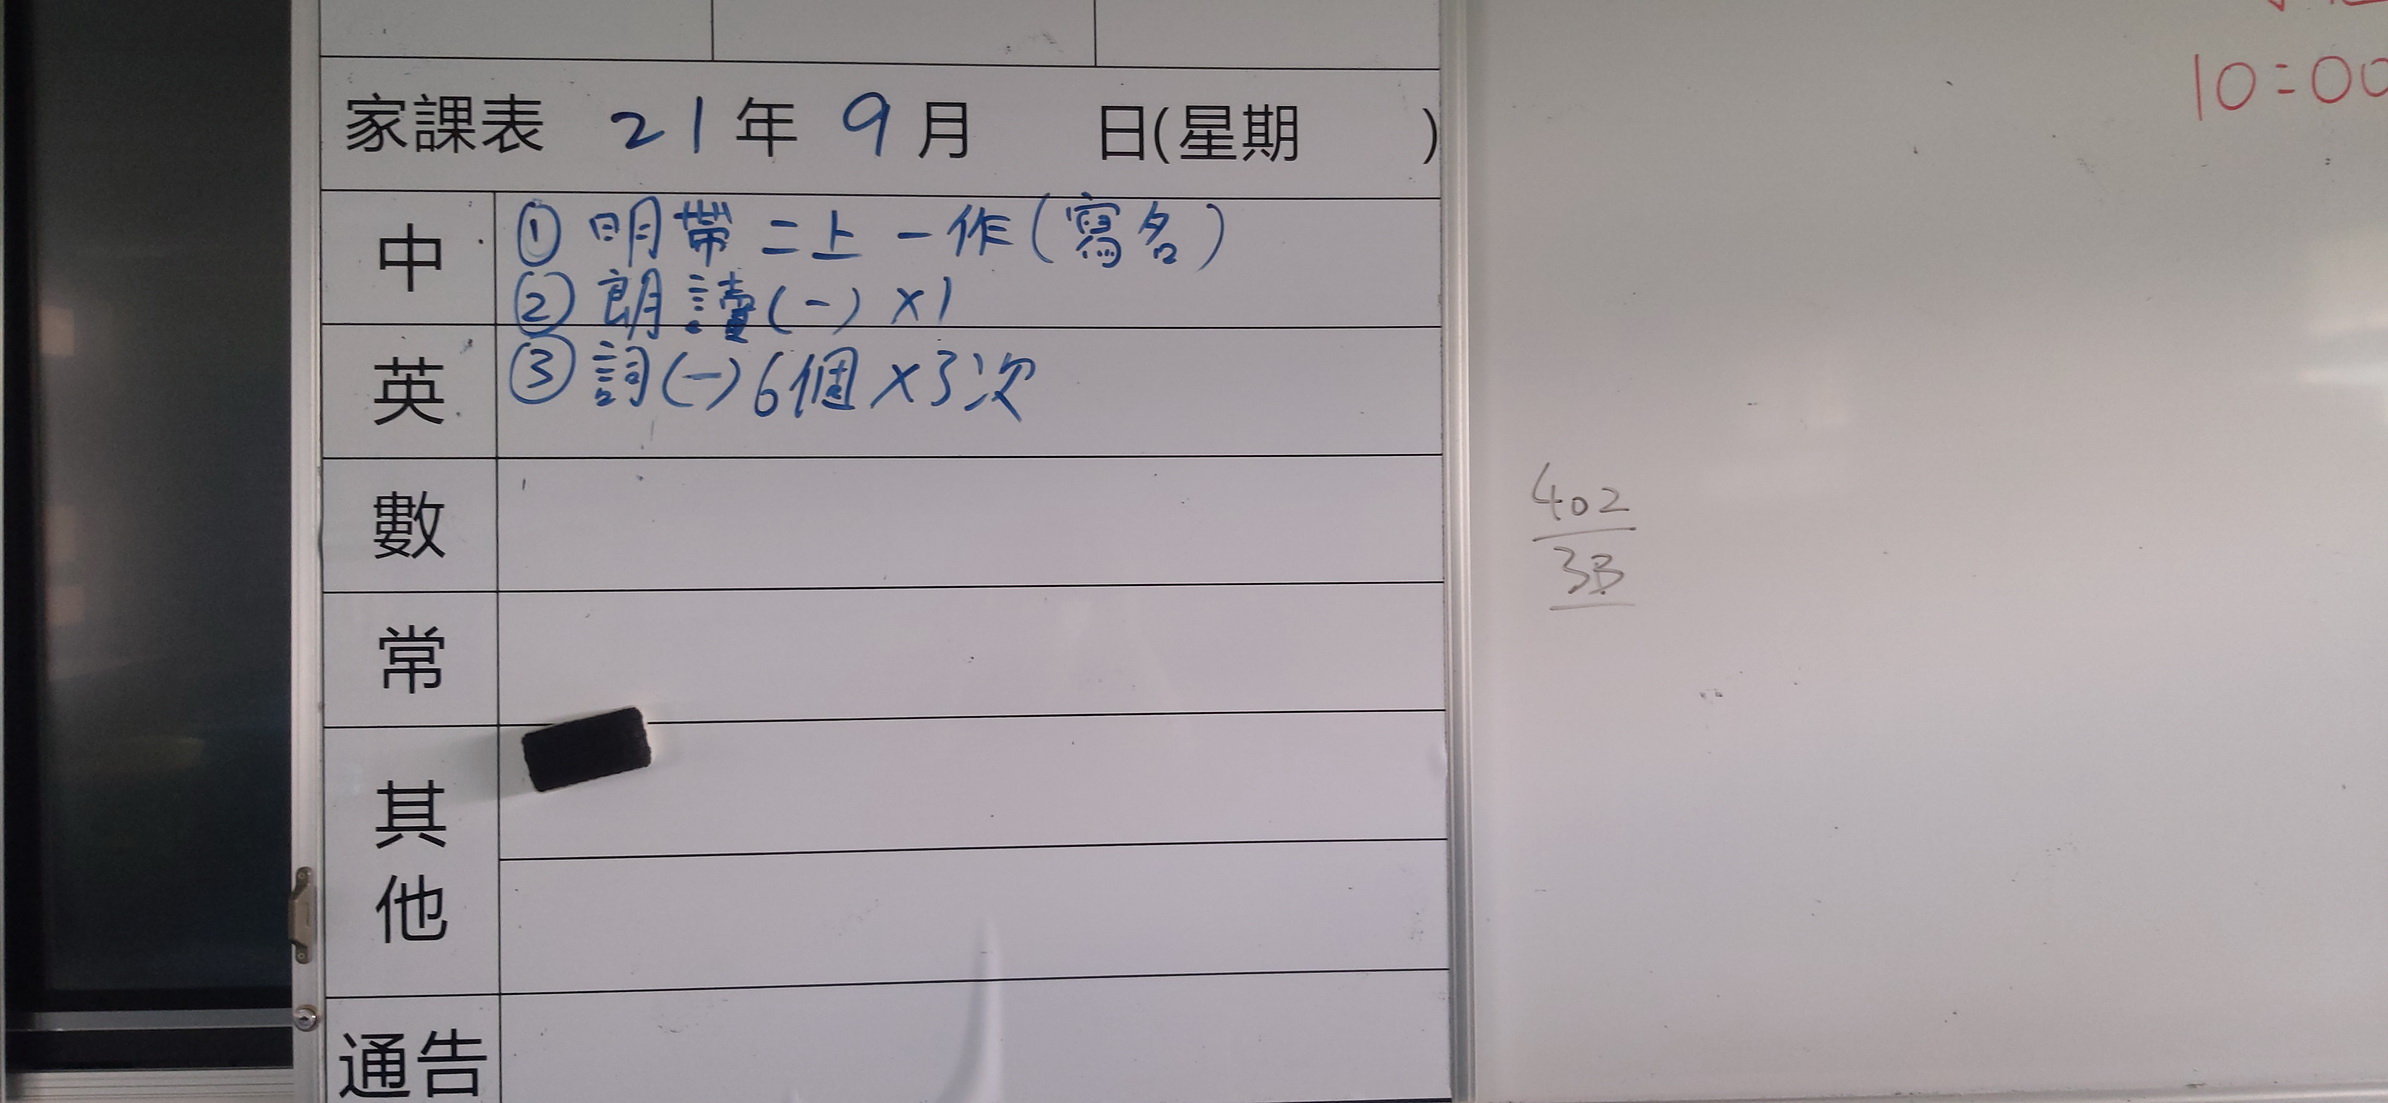 家課表 21年 9月 日(星期 )
中 ① 明帶二上一作(寫名)
② 朗讀(一)×1
英 ③ 詞(一)6個×3次
數
常
其他
通告
10:00
402
33